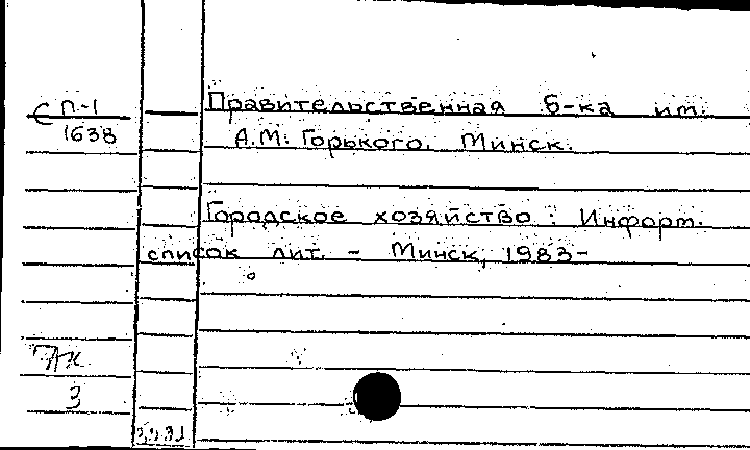 П-1
1638
Правительственная б-ка им.
А.М. Горького. Минск.
Городское хозяйство : Информ.
список лит. - Минск, 1983-
3